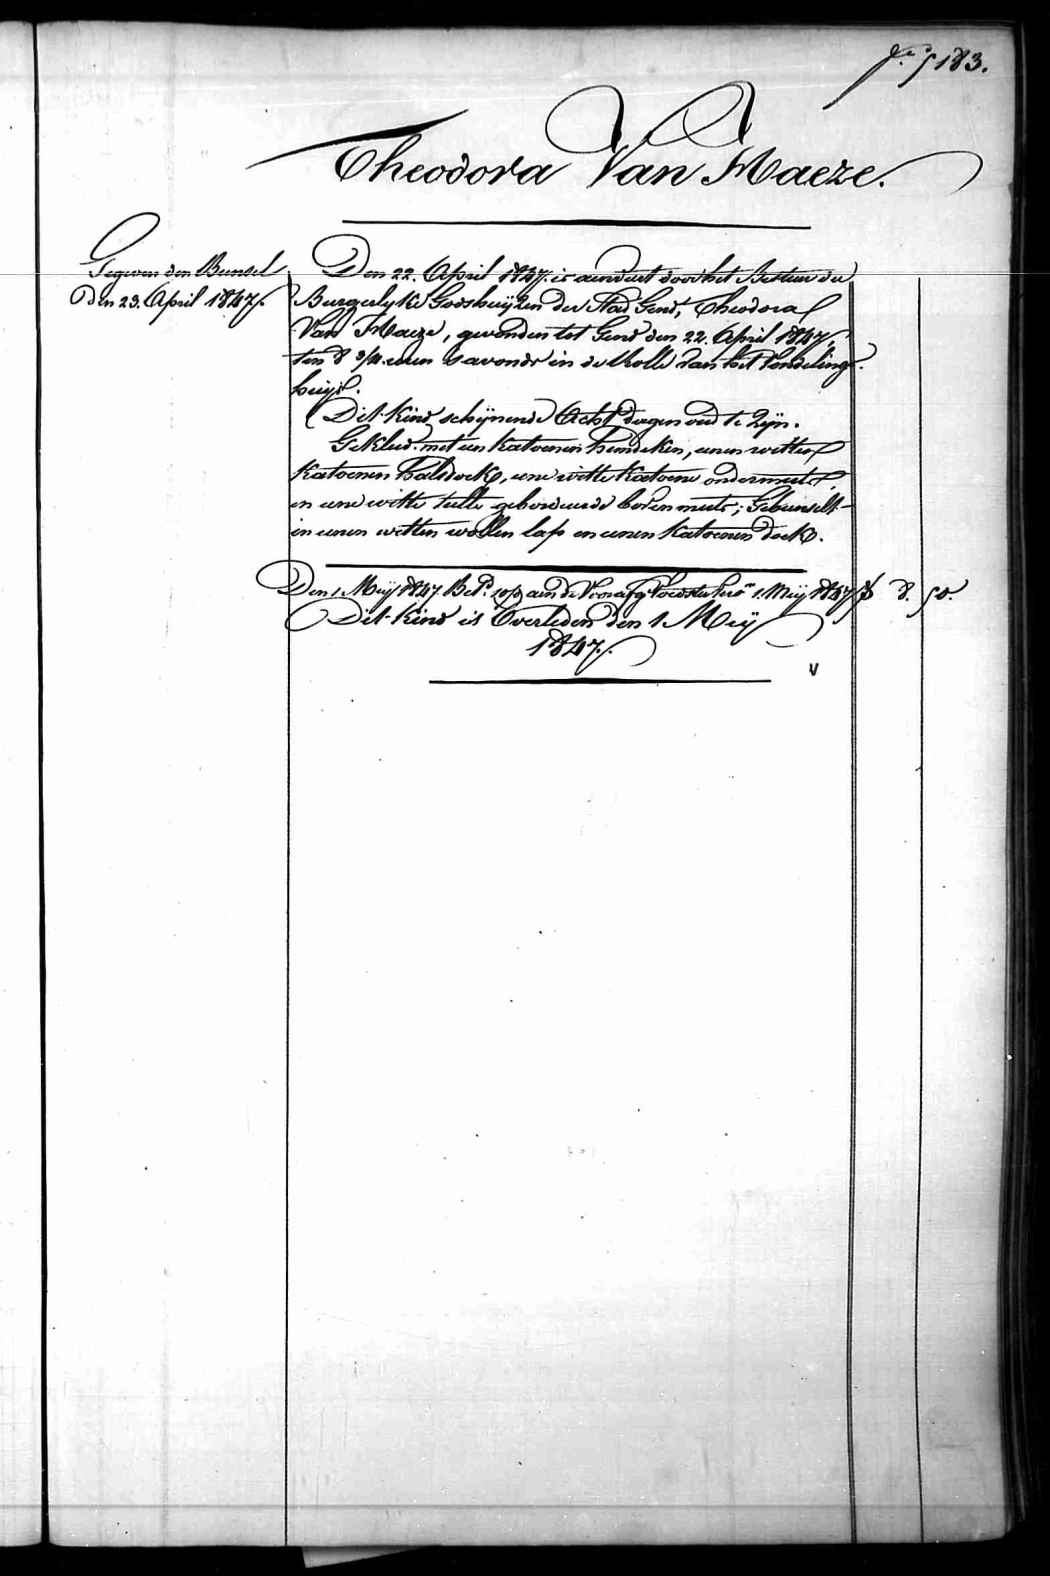 f.º 5183.
Theodora Van Maeze.
Gegeven den Bunsel
den 23. April 1847.
Den 22. April 1847. is aenveert door het Bestuer der
Burgerlyke Godshuijzen der Stad Gend, Theodora
Van Maeze, gevonden tot Gend den 22. April 1847,
ten 8 3/4 uren s'avonds in de Rolle van het Vondeling-
huijs.
Dit kind schijnende Acht dagen oud te Zijn.
Gekleed met een katoenen hemdeken, eenen witten
katoenen halsdoek, eene witte katoene ondermuts,
en eene witte tulle geborduerde bovenmuts; Gebunselt
in eenen witten wollen lap en eenen katoenen doek.
Den 1 Meij 1847 Bet. aen de Voedster 1. Meij 1847 8. 50.
Dit kind is Overleden den 1 Meij
1847.
v